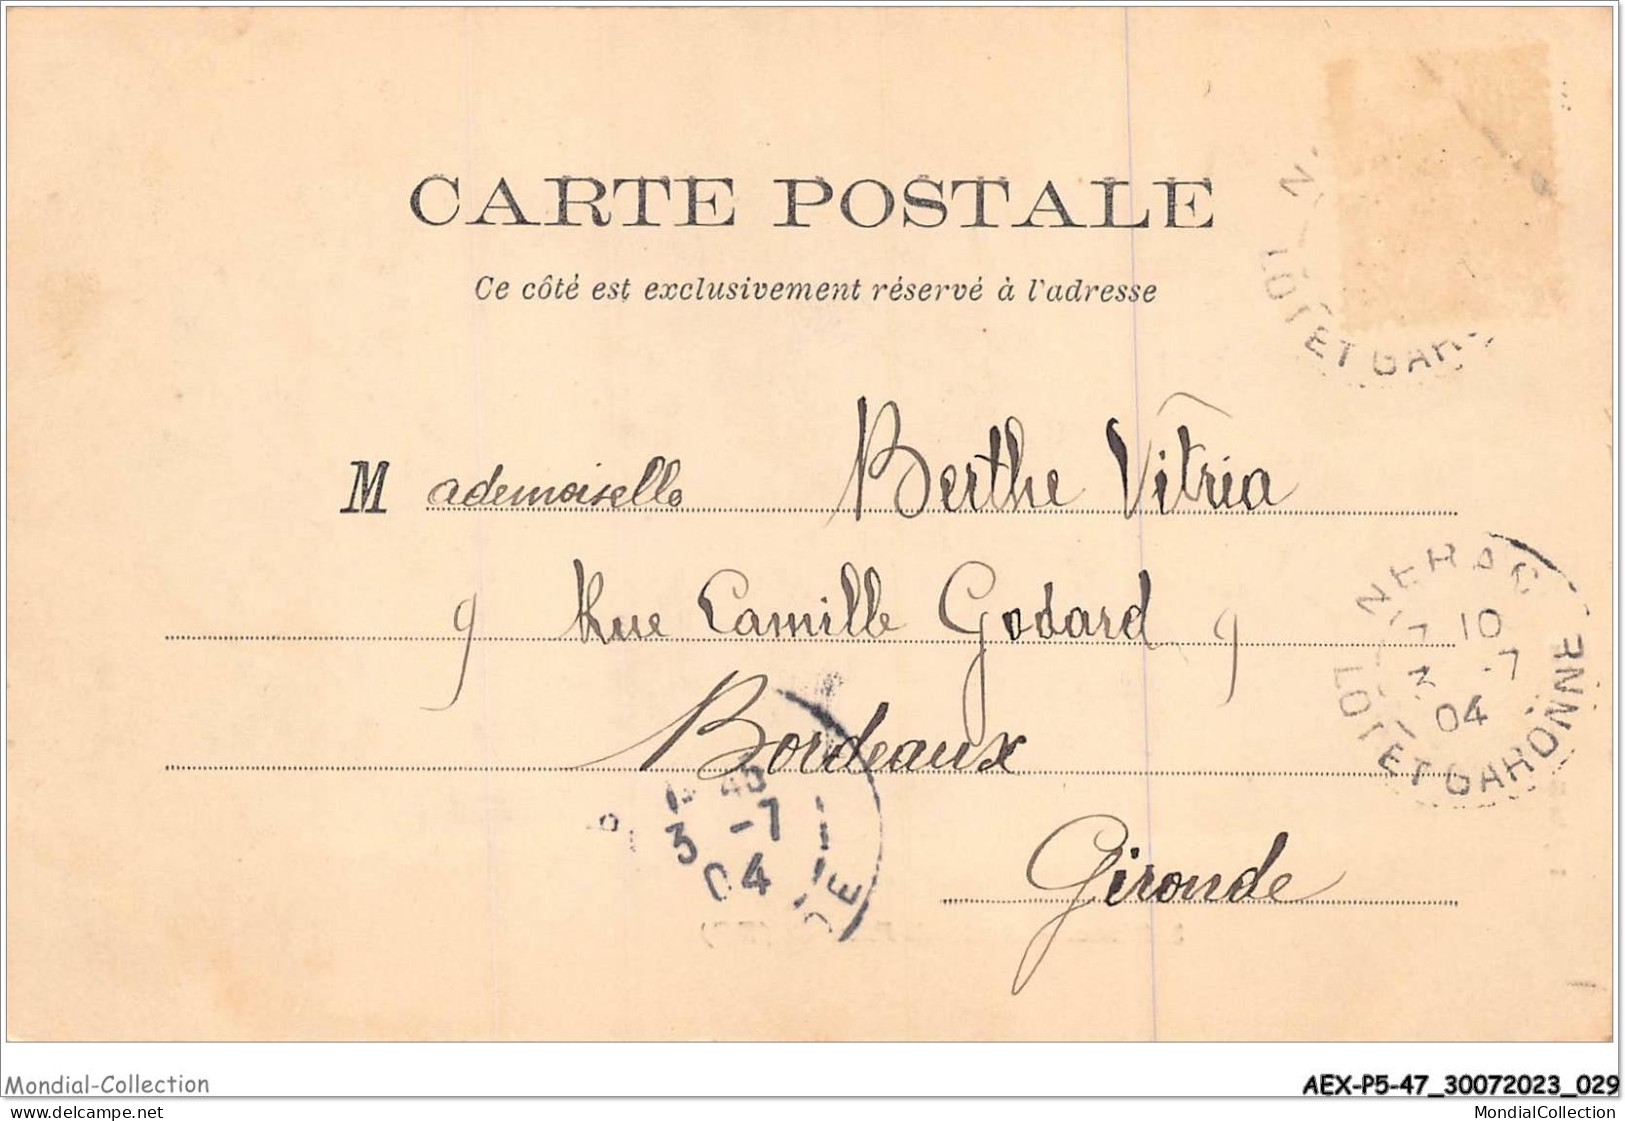 CARTE POSTALE
Ce côté est exclusivement réservé à l'adresse
LOT ET GAR
Mademoiselle Berthe Vitria
9 Rue Camille Godard 9
Bordeaux
Gironde
NERAC
10
-7
04
LOT ET GARONNE
3 -7
04
DE
Mondial-Collection
AEX-P5-47_30072023_029
www.delcampe.net
MondialCollection